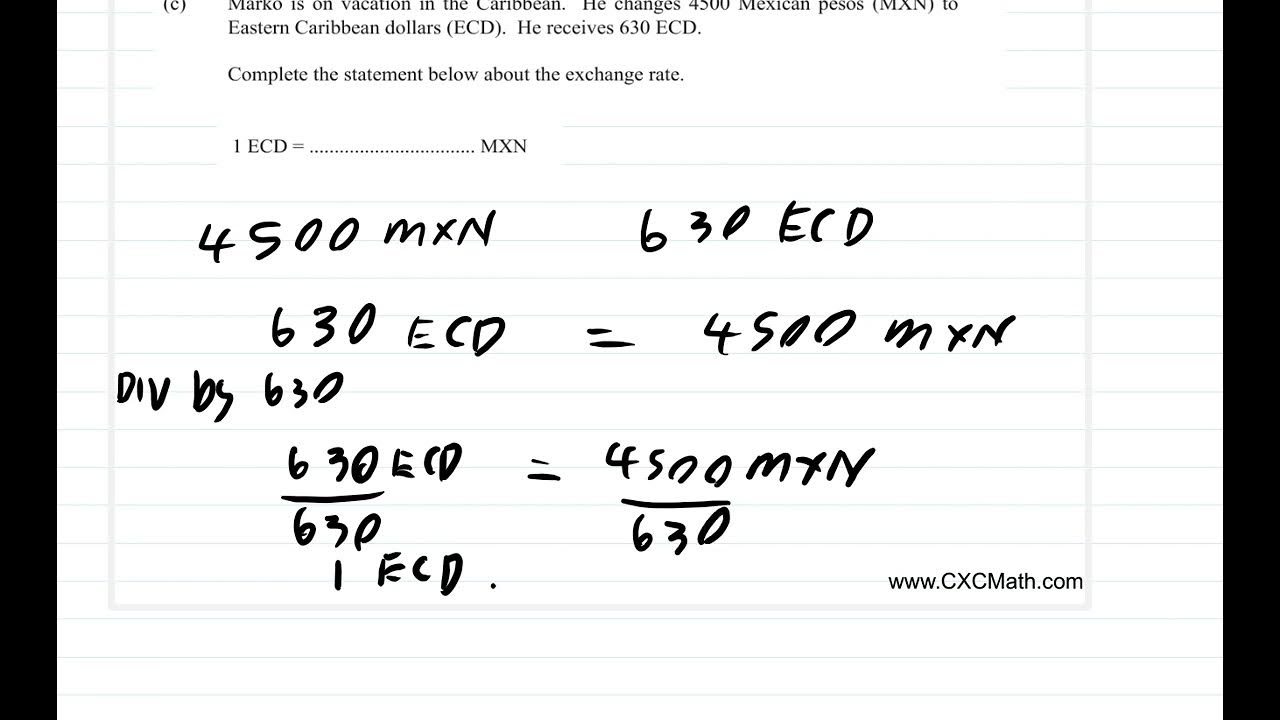 (c) Marko is on vacation in the Caribbean. He changes 4500 Mexican pesos (MXN) to
Eastern Caribbean dollars (ECD). He receives 630 ECD.
Complete the statement below about the exchange rate.
1 ECD = ................................. MXN
4500 MXN 630 ECD
630 ECD = 4500 MXN
DIV by 630
630 ECD = 4500 MXN
630 630
1 ECD .
www.CXCMath.com